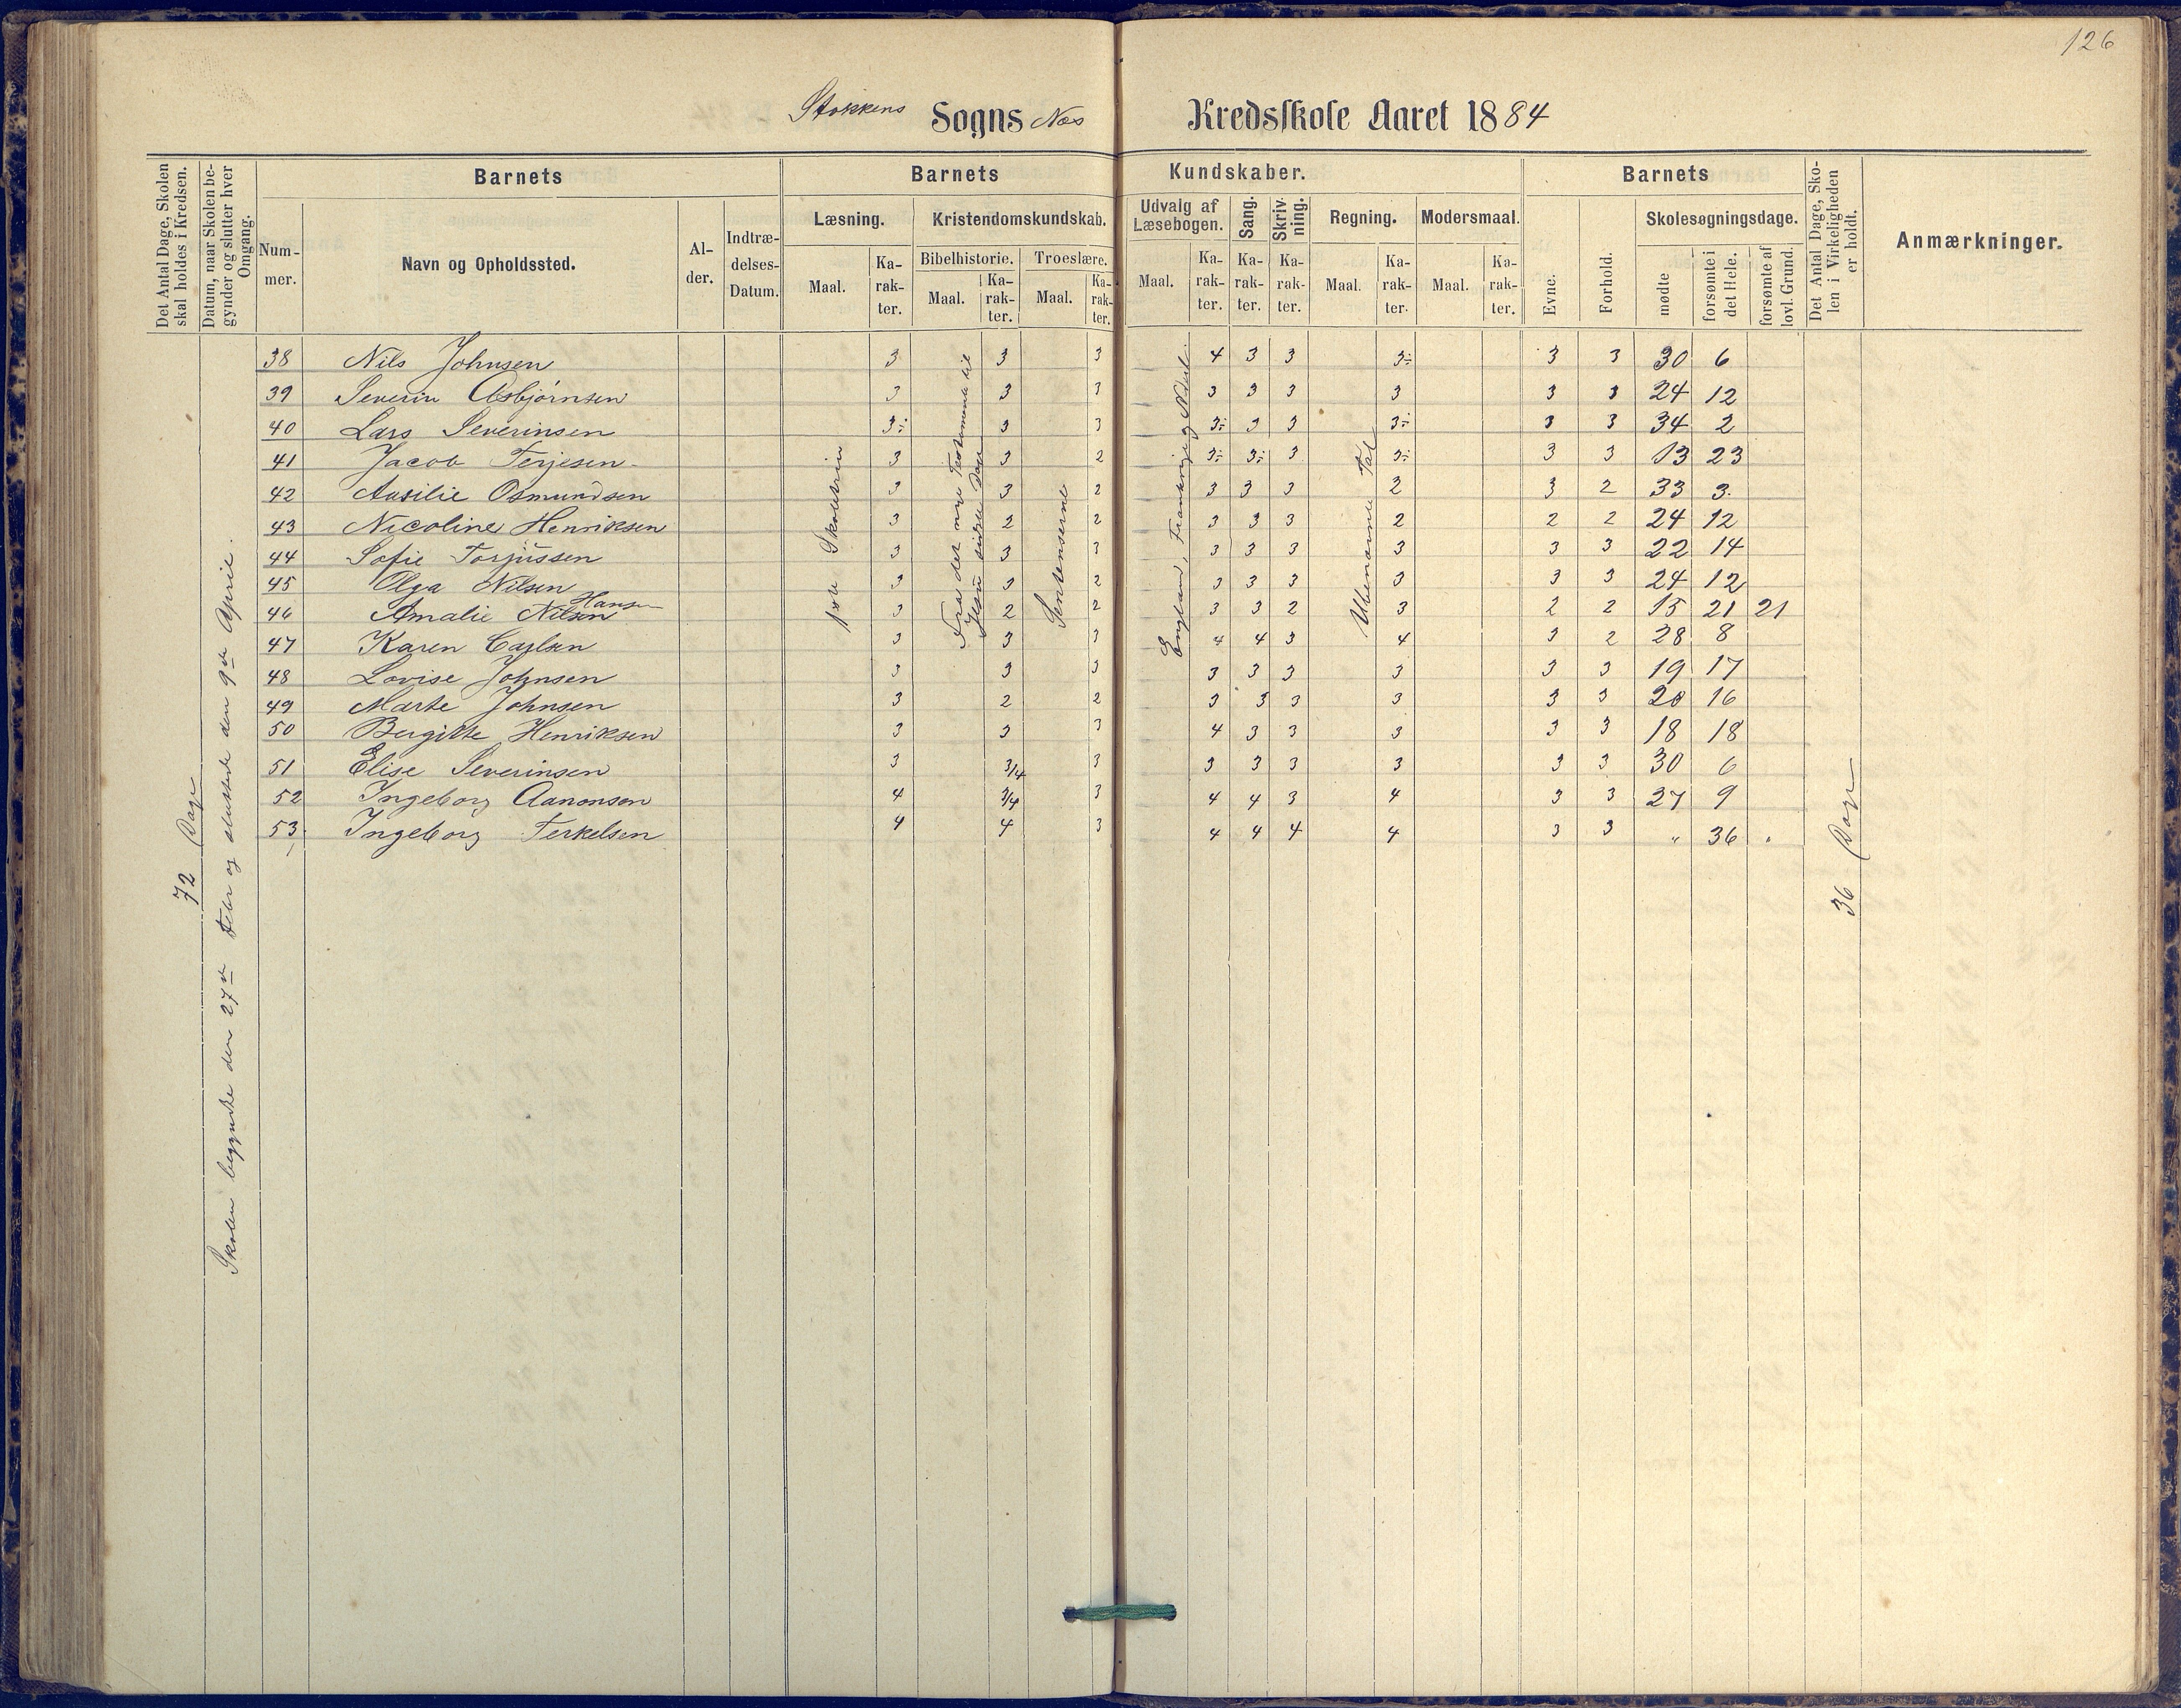 126
Stokkens Sogns Næs Kredsskole Aaret 1884
Det Antal Dage, Skolen skal holdes i Kredsen.
Datum, naar Skolen begynder og slutter hver Omgang.
Barnets
Nummer.
Navn og Opholdssted.
Alder.
Indtrædelses-Datum.
Barnets Kundskaber.
Læsning.
Maal.
Karakter.
Kristendomskundskab.
Bibelhistorie.
Maal.
Karakter.
Troeslære.
Maal.
Karakter.
Udvalg af Læsebogen.
Maal.
Karakter.
Sang.
Karakter.
Skrivning.
Karakter.
Regning.
Maal.
Karakter.
Modersmaal.
Maal.
Karakter.
Barnets
Evne.
Forhold.
Skolesøgningsdage.
mødte
forsømte i det Hele.
forsømte af lovl. Grund.
Det Antal Dage, Skolen i Virkeligheden er holdt.
Anmærkninger.
72 Dage
Skolen begyndte den 27de Febr og sluttede den 9de April.
1ste Skoletrin
Fra det nye Testamente til
Jesu sidste Dage
Sentenserne
England, Frankrige og
Ubenævnte Tal
36 Dage
38 Nils Johnsen 3 3 3 4 3 3 3÷ 3 3 30 6
39 Severin Asbjørnsen 3 3 3 3 3 3 3 3 3 24 12
40 Lars Severinsen 3÷ 3 3 3÷ 3 3 3÷ 3 3 34 2
41 Jacob Terjesen 3 3 2 3÷ 3÷ 3 3÷ 3 3 13 23
42 Osmundsen 3 3 2 3 3 3 2 3 2 33 3
43 Nicoline Henriksen 3 2 2 3 3 3 2 2 2 24 12
44 Sofie Torjussen 3 3 3 3 3 3 3 3 3 22 14
45 Olga Nilsen 3 3 2 3 3 3 3 3 3 24 12
46 Amalie Nilsen Hansen 3 2 2 3 3 2 3 2 2 15 21 21
47 Karen Carlsen 3 3 3 4 4 3 4 3 2 28 8
48 Lovise Johnsen 3 3 3 3 3 3 3 3 3 19 17
49 Marte Johnsen 3 2 2 3 3 3 3 3 3 20 16
50 Bergitte Henriksen 3 3 3 4 3 3 3 3 3 18 18
51 Elise Severinsen 3 3/4 3 3 3 3 3 3 3 30 6
52 Ingeborg Aanonsen 4 3/4 3 4 4 3 4 3 3 27 9
53 Ingeborg Terkelsen 4 4 3 4 4 4 4 3 3 " 36 "